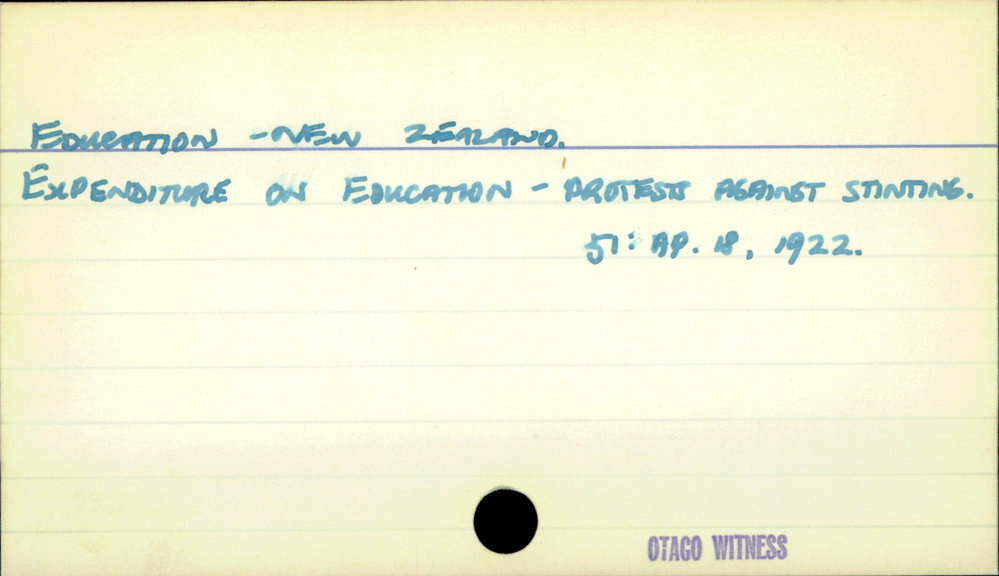 EDUCATION - NEW ZEALAND.
EXPENDITURE ON EDUCATION - PROTESTS AGAINST STINTING.
51: AP. 18, 1922.
OTAGO WITNESS